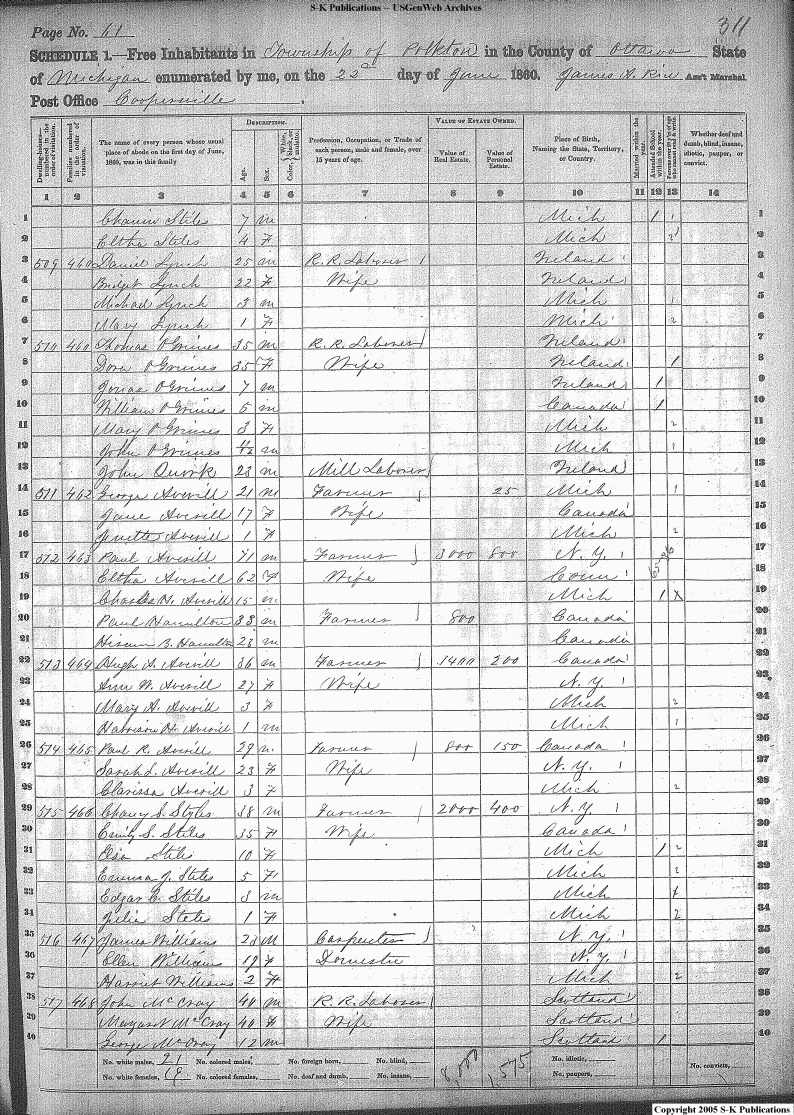 S-K Publications – USGenWeb Archives
Page No. 61
311
SCHEDULE 1.—Free Inhabitants in Township of Polkton in the County of Ottawa State
of Michigan enumerated by me, on the 22d day of June 1860. James A. Rice Ass't Marshal
Post Office Coopersville.
Dwelling-houses—numbered in the order of visitation. Families numbered in the order of visitation. The name of every person whose usual place of abode on the first day of June, 1860, was in this family DESCRIPTION. Age. Sex. Color, White, black, or mulatto. Profession, Occupation, or Trade of each person, male and female, over 15 years of age. VALUE OF ESTATE OWNED. Value of Real Estate. Value of Personal Estate. Place of Birth, Naming the State, Territory, or Country. Married within the year. Attended School within the year. Persons over 20 y'rs of age who cannot read & write. Whether deaf and dumb, blind, insane, idiotic, pauper, or convict.
1 2 3 4 5 6 7 8 9 10 11 12 13 14
1 Stiles 7 m Mich / 1 1
2 Eltha Stiles 4 F Mich 2 2
3 509 460 Daniel Lynch 25 m R. R. Laborer / Ireland 3
4 Bridget Lynch 22 F Wife Ireland 4
5 Michael Lynch 3 m Mich 1 5
6 Mary Lynch 1 F Mich 2 6
7 510 460 Thomas O Grimes 35 m R. R. Laborer Ireland 7
8 Dora O Grimes 35 F Wife Ireland / 8
9 O Grimes 7 m Ireland / 9
10 William O Grimes 5 m Canada / 10
11 Mary O Grimes 3 F Mich 2 11
12 John O Grimes m Mich 1 12
13 John Quork 23 m Mill Laborer Ireland 13
14 511 462 George Averill 21 m Farmer 25 Mich 1 14
15 Jane Averill 17 F Wife Canada 15
16 Averill 1 F Mich 2 16
17 512 463 Paul Averill 71 m Farmer 3000 800 N. Y. 17
18 Eltha Averill 62 F Wife Conn 18
19 Charles H. Averill 15 m Mich 1 X 19
20 Paul Hamilton 33 m Farmer 800 Canada 20
21 Hiram B. Hamilton 23 m Canada 21
22 513 464 Hugh A. Averill 36 m Farmer 1400 200 Canada 22
23 Ann W. Averill 27 F Wife N. Y. 23
24 Mary A. Averill 3 F Mich 2 24
25 Harrison H. Averill 1 m Mich 1 25
26 514 465 Paul R. Averill 29 m Farmer 800 150 Canada 26
27 Sarah L. Averill 23 F Wife N. Y. 27
28 Clarissa Averill 3 F Mich 2 28
29 515 466 Chancy S. Styles 38 m Farmer 2000 400 N. Y. 29
30 Emily S. Stiles 35 F Wife Canada 30
31 Elsa Stiles 10 F Mich / 2 31
32 Emma J. Stiles 5 F Mich 2 32
33 Edgar C. Stiles 3 m Mich 1 33
34 Julia Stiles 1 F Mich 2 34
35 516 467 James Williams 23 M Carpenter N. Y. 35
36 Ellen Williams 19 F Domestic N. Y. 36
37 Harriet Williams 2 F Mich 2 37
38 517 468 John McCray 40 m R. R. Laborer Scotland 38
39 Margaret McCray 40 F Wife Scotland 39
40 George McCray 12 m Scotland / 40
No. white males, 21 No. colored males, No. foreign born, No. blind, 8,000 1,575 No. idiotic, No. convicts,
No. white females, 19 No. colored females, No. deaf and dumb, No. insane, No. paupers,
Copyright 2005 S-K Publications